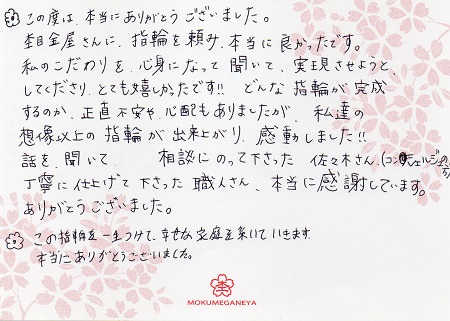 この度は、本当にありがとうございました。
杢目金屋さんに、指輪を頼み、本当に良かったです。
私のこだわりを、心身になって聞いて、実現させようと、
してくださり、とても嬉しかったです!! どんな指輪が完成
するのか、正直不安や、心配もありましたが、私達の
想像以上の指輪が出来上がり、感動しました!!
話を聞いて、相談にのって下さった 佐々木さん、(コンシェルジュの方)
丁寧に仕上げて下さった職人さん、本当に感謝しています。
ありがとうございました。
この指輪を一生つけて、幸せな家庭を築いていきます。
本当にありがとうございました。
MOKUMEGANEYA